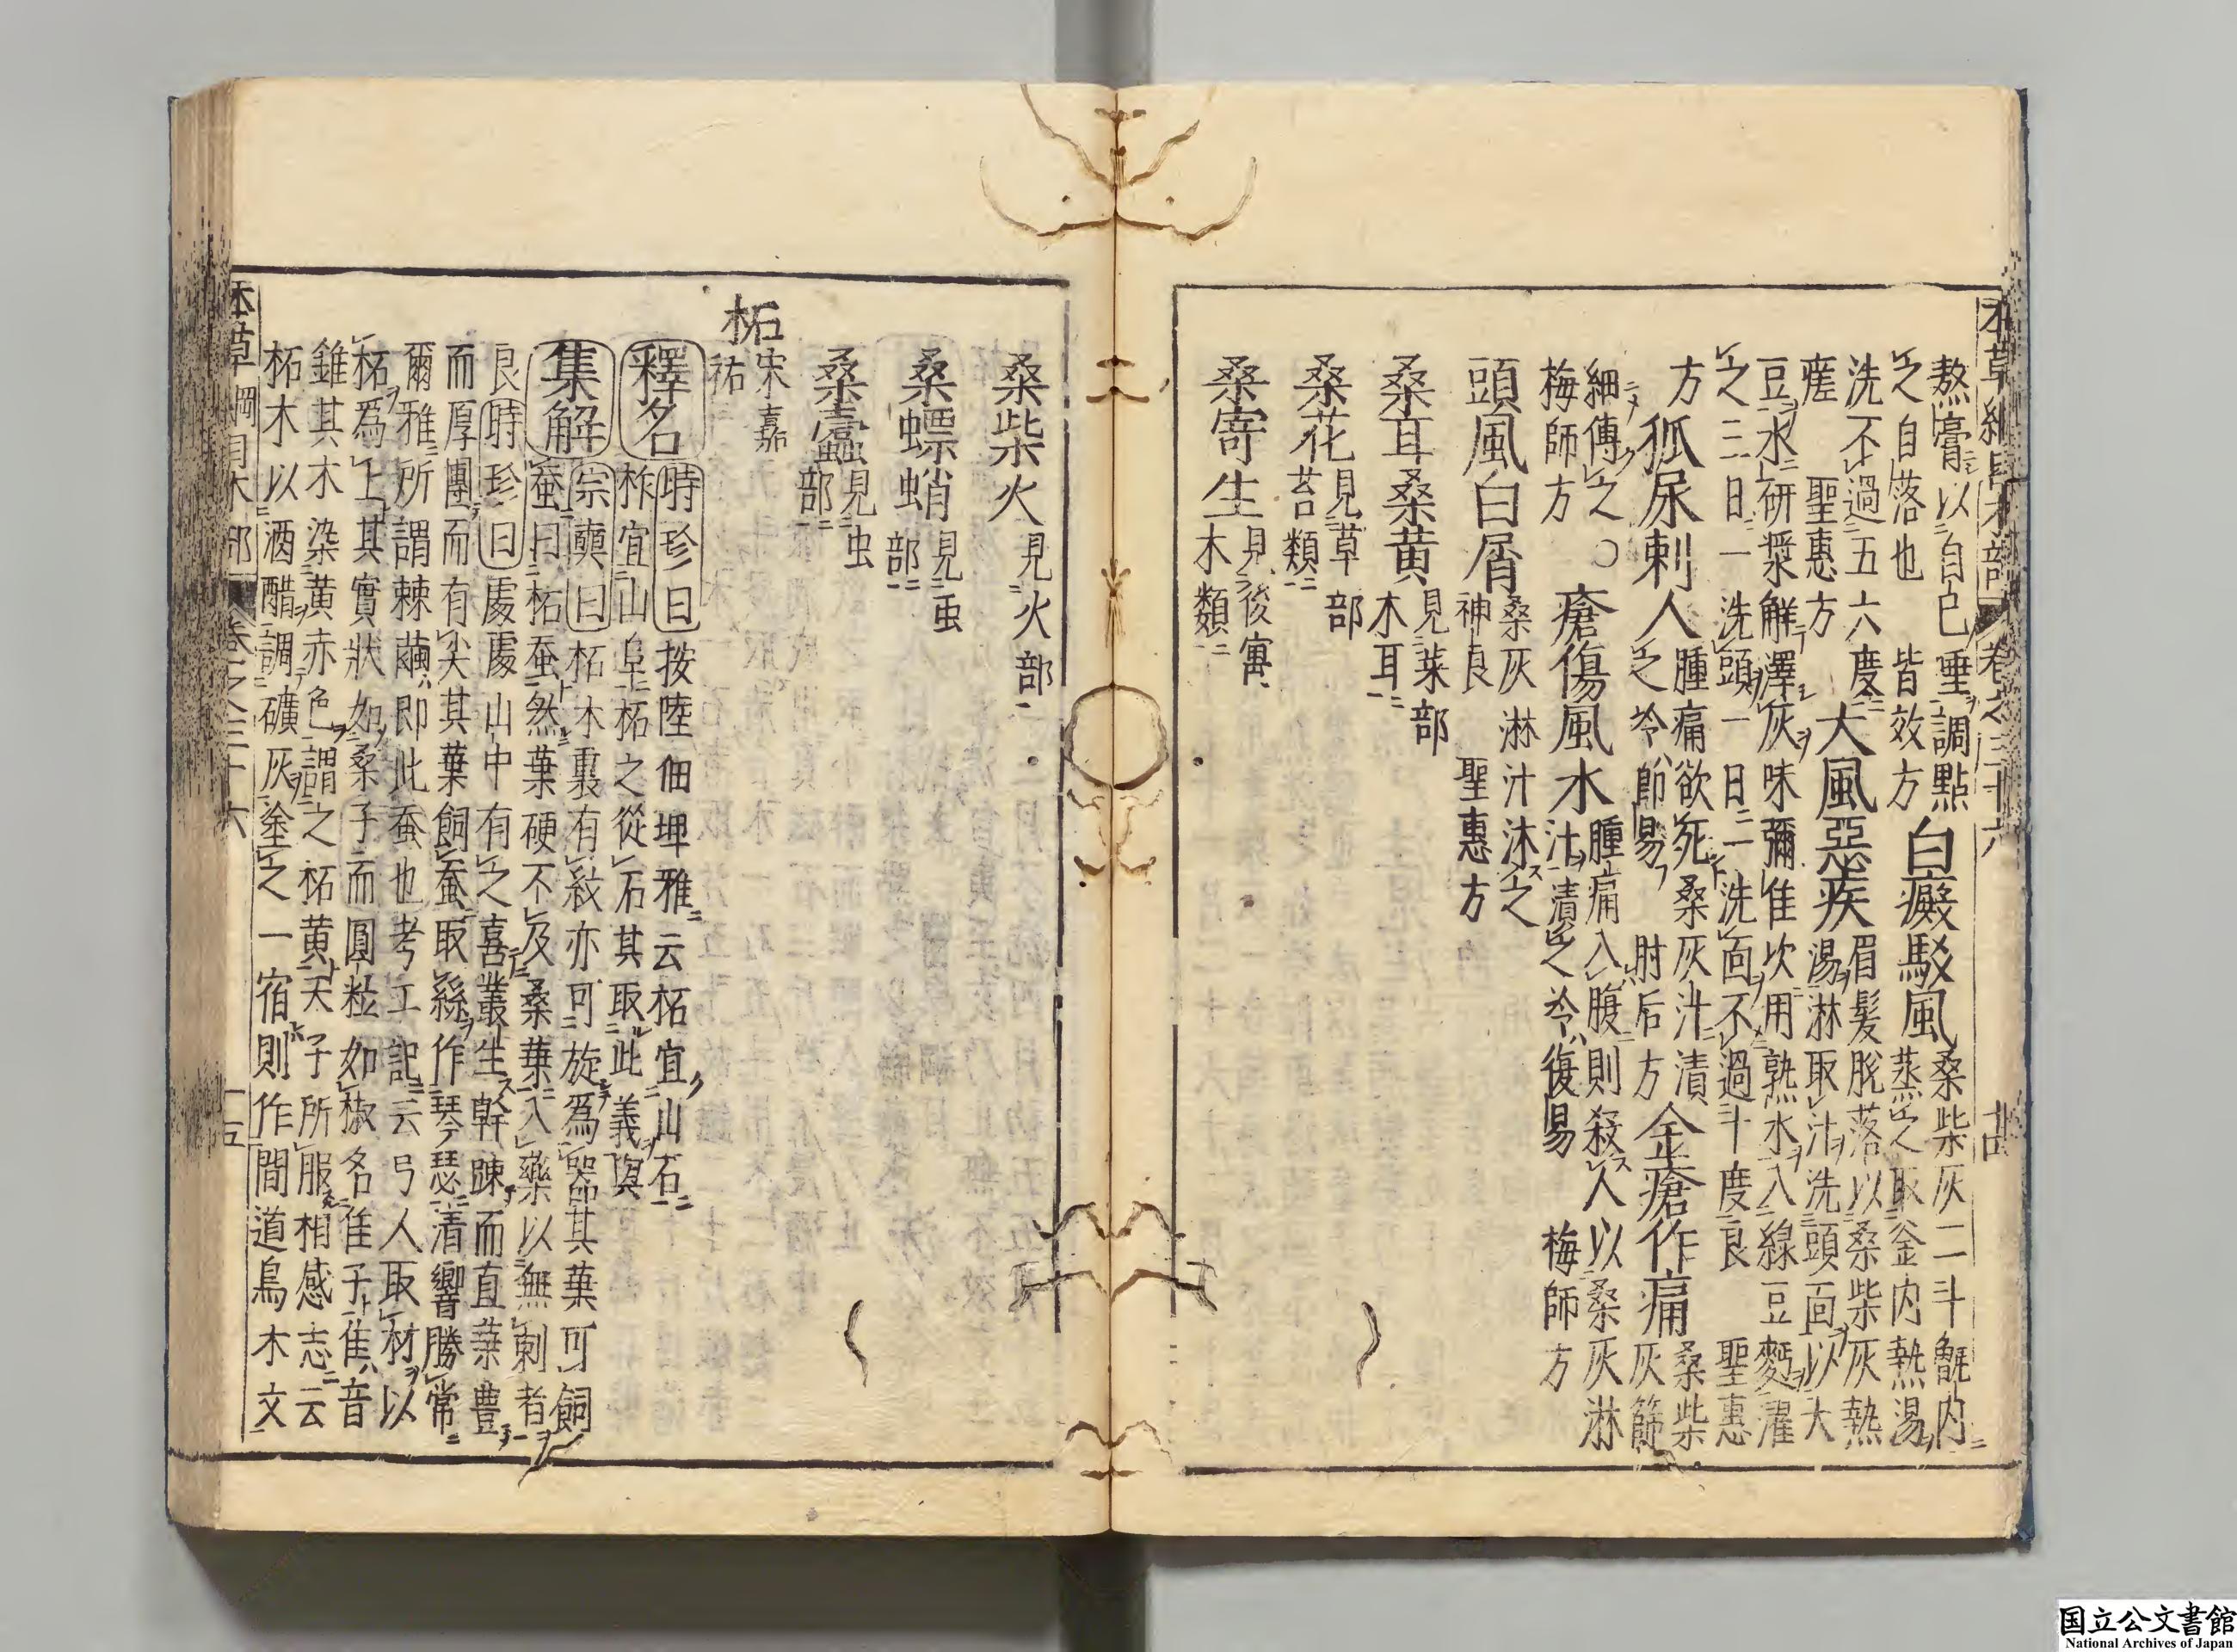 本草綱目木部 卷之三十六 廿四
熬膏以自己唾調點
之自落也 皆效方
白癜駁風
桑柴灰二斗甑内
蒸之取釜内熱湯
洗不過五六度
瘥 聖惠方
大風惡疾
眉髮脫落以桑柴灰熱
湯淋取汁洗頭面以大
豆水研漿解澤灰味彌佳次用熟水入綠豆麪濯
之三日一洗頭一日二洗面不過十度良 聖惠
方
狐尿刺人
腫痛欲死桑灰汁漬
之冷即易 肘后方
金瘡作痛
桑柴
灰篩
細傅之○
梅師方
瘡傷風水
腫痛入腹則殺人以桑灰淋
汁漬之冷復易 梅師方
頭風白屑
桑灰淋汁沐之
神良 聖惠方
桑耳桑黃
見菜部
木耳
桑花
見草部
苔類
桑寄生
見後寓
木類
桑柴火見火部
桑螵蛸
見虫
部
桑蠹
見虫
部
柘
宋嘉
祐
釋名
時珍曰按陸佃埤雅云柘宜山石
柞宜山阜柘之從石其取此義㰄
集解
宗奭曰柘木裏有紋亦可旋爲器其葉可飼
蚕曰柘蚕然葉硬不及桑葉入藥以無刺者
良時珍曰處處山中有之喜叢生幹踈而直葉豊
而厚團而有尖其葉飼蚕取絲作琴瑟清響勝常
爾雅所謂棘繭即此蚕也考工記云弓人取材以
柘爲上其實狀如桑子而圓粒如椒名佳子隹音
錐其木染黃赤色謂之柘黃天子所服相感志云
柘木以酒醋調礦灰塗之一宿則作間道烏木文
本草綱目木部 卷之三十六 十五
国立公文書館
National Archives of Japan